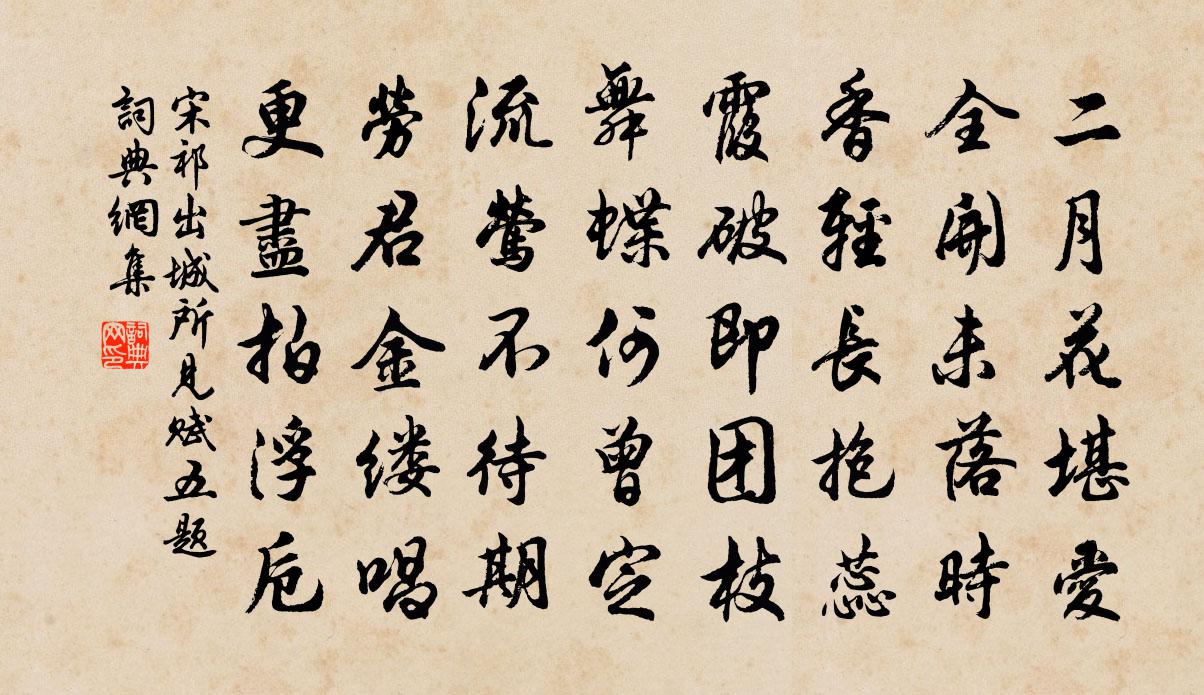 二月花堪愛
全開未落時
香輕長抱蕊
霞破即团枝
舞蝶何曾定
流鶯不待期
勞君金缕唱
更盡拍浮卮
宋祁出城所見赋五题
詞典網集
詞典网印